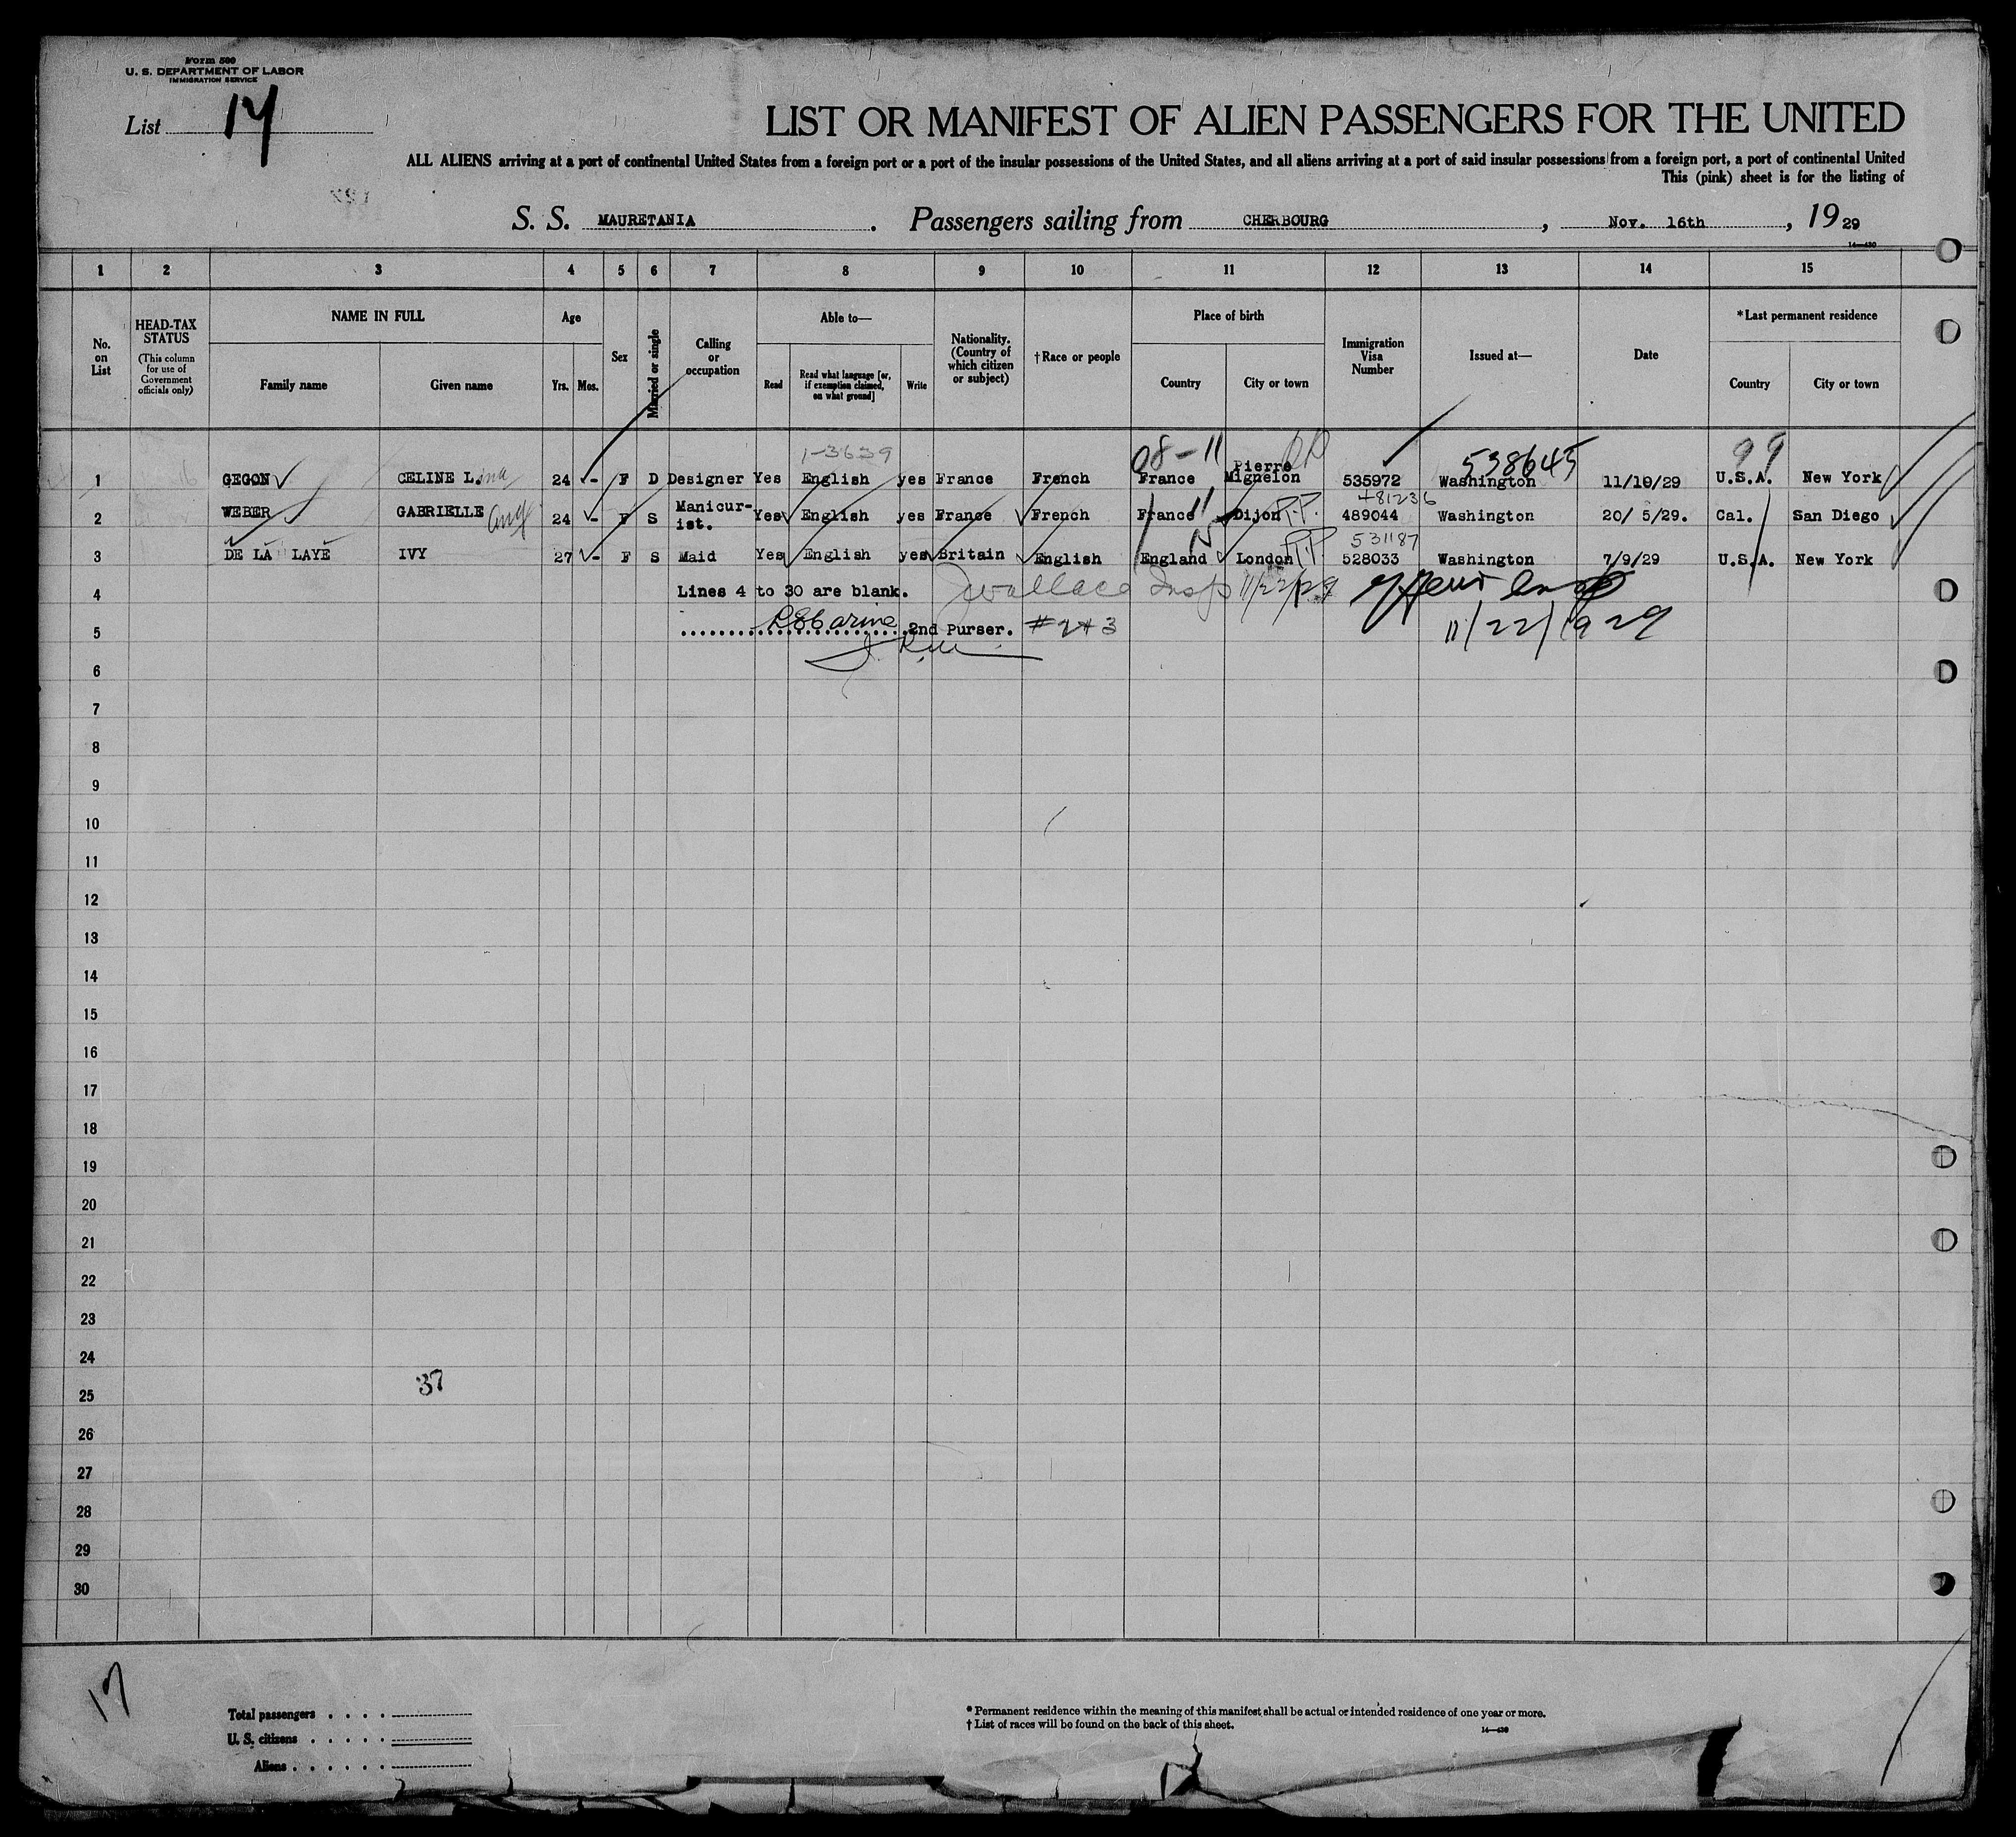 Form 500
U. S. DEPARTMENT OF LABOR
IMMIGRATION SERVICE
List 14
LIST OR MANIFEST OF ALIEN PASSENGERS FOR THE UNITED
ALL ALIENS arriving at a port of continental United States from a foreign port or a port of the insular possessions of the United States, and all aliens arriving at a port of said insular possessions from a foreign port, a port of continental United
This (pink) sheet is for the listing of
S. S. MAURETANIA. Passengers sailing from CHERBOURG, Nov. 16th, 1929
14—430
1 2 3 4 5 6 7 8 9 10 11 12 13 14 15
No. on List
HEAD-TAX STATUS (This column for use of Government officials only)
NAME IN FULL
Family name Given name
Age
Yrs. Mos.
Sex
Married or single
Calling or occupation
Able to—
Read Read what language [or, if exemption claimed, on what ground] Write
Nationality. (Country of which citizen or subject)
†Race or people
Place of birth
Country City or town
Immigration Visa Number
Issued at—
Date
*Last permanent residence
Country City or town
1-3639 08-11 538645 99
1 GEGON CELINE L. 24 - F D Designer Yes English yes France French France Pierre Mignelon 535972 Washington 11/10/29 U.S.A. New York
481236
2 WEBER GABRIELLE 24 - F S Manicur-ist. Yes English yes France French France 11 Dijon P.P. 489044 Washington 20/ 5/29. Cal. San Diego
531187
3 DE LA LAYE IVY 27 - F S Maid Yes English yes Britain English England London P.P. 528033 Washington 7/9/29 U.S.A. New York
4 Lines 4 to 30 are blank. Wallace Insp 11/22/29
5 2nd Purser. #2+3 11/22/1929
6
7
8
9
10
11
12
13
14
15
16
17
18
19
20
21
22
23
24
37
25
26
27
28
29
30
17
Total passengers
U. S. citizens
Aliens
* Permanent residence within the meaning of this manifest shall be actual or intended residence of one year or more.
† List of races will be found on the back of this sheet.
14—430